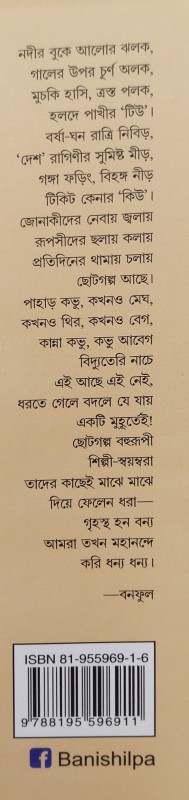 নদীর বুকে আলোর ঝলক,
গালের উপর চূর্ণ অলক,
মুচকি হাসি, ত্রস্ত পলক,
হলদে পাখীর 'টিউ'।
বর্ষা-ঘন রাত্রি নিবিড়,
'দেশ' রাগিণীর সুমিষ্ট মীড়,
গঙ্গা ফড়িং, বিহঙ্গ নীড়
টিকিট কেনার 'কিউ'।
জোনাকীদের নেবায় জ্বলায়
রূপসীদের ছলায় কলায়
প্রতিদিনের থামায় চলায়
ছোটগল্প আছে।
পাহাড় কভু, কখনও মেঘ,
কখনও থির, কখনও বেগ,
কান্না কভু, কভু আবেগ
বিদ্যুতেরি নাচে
এই আছে এই নেই,
ধরতে গেলে বদলে যে যায়
একটি মুহূর্তেই!
ছোটগল্প বহুরূপী
শিল্পী-স্বয়ম্বরা
তাদের কাছেই মাঝে মাঝে
দিয়ে ফেলেন ধরা—
গৃহস্থ হন বন্য
আমরা তখন মহানন্দে
করি ধন্য ধন্য।
—বনফুল
ISBN 81-955969-1-6
9 788195 596911
Banishilpa